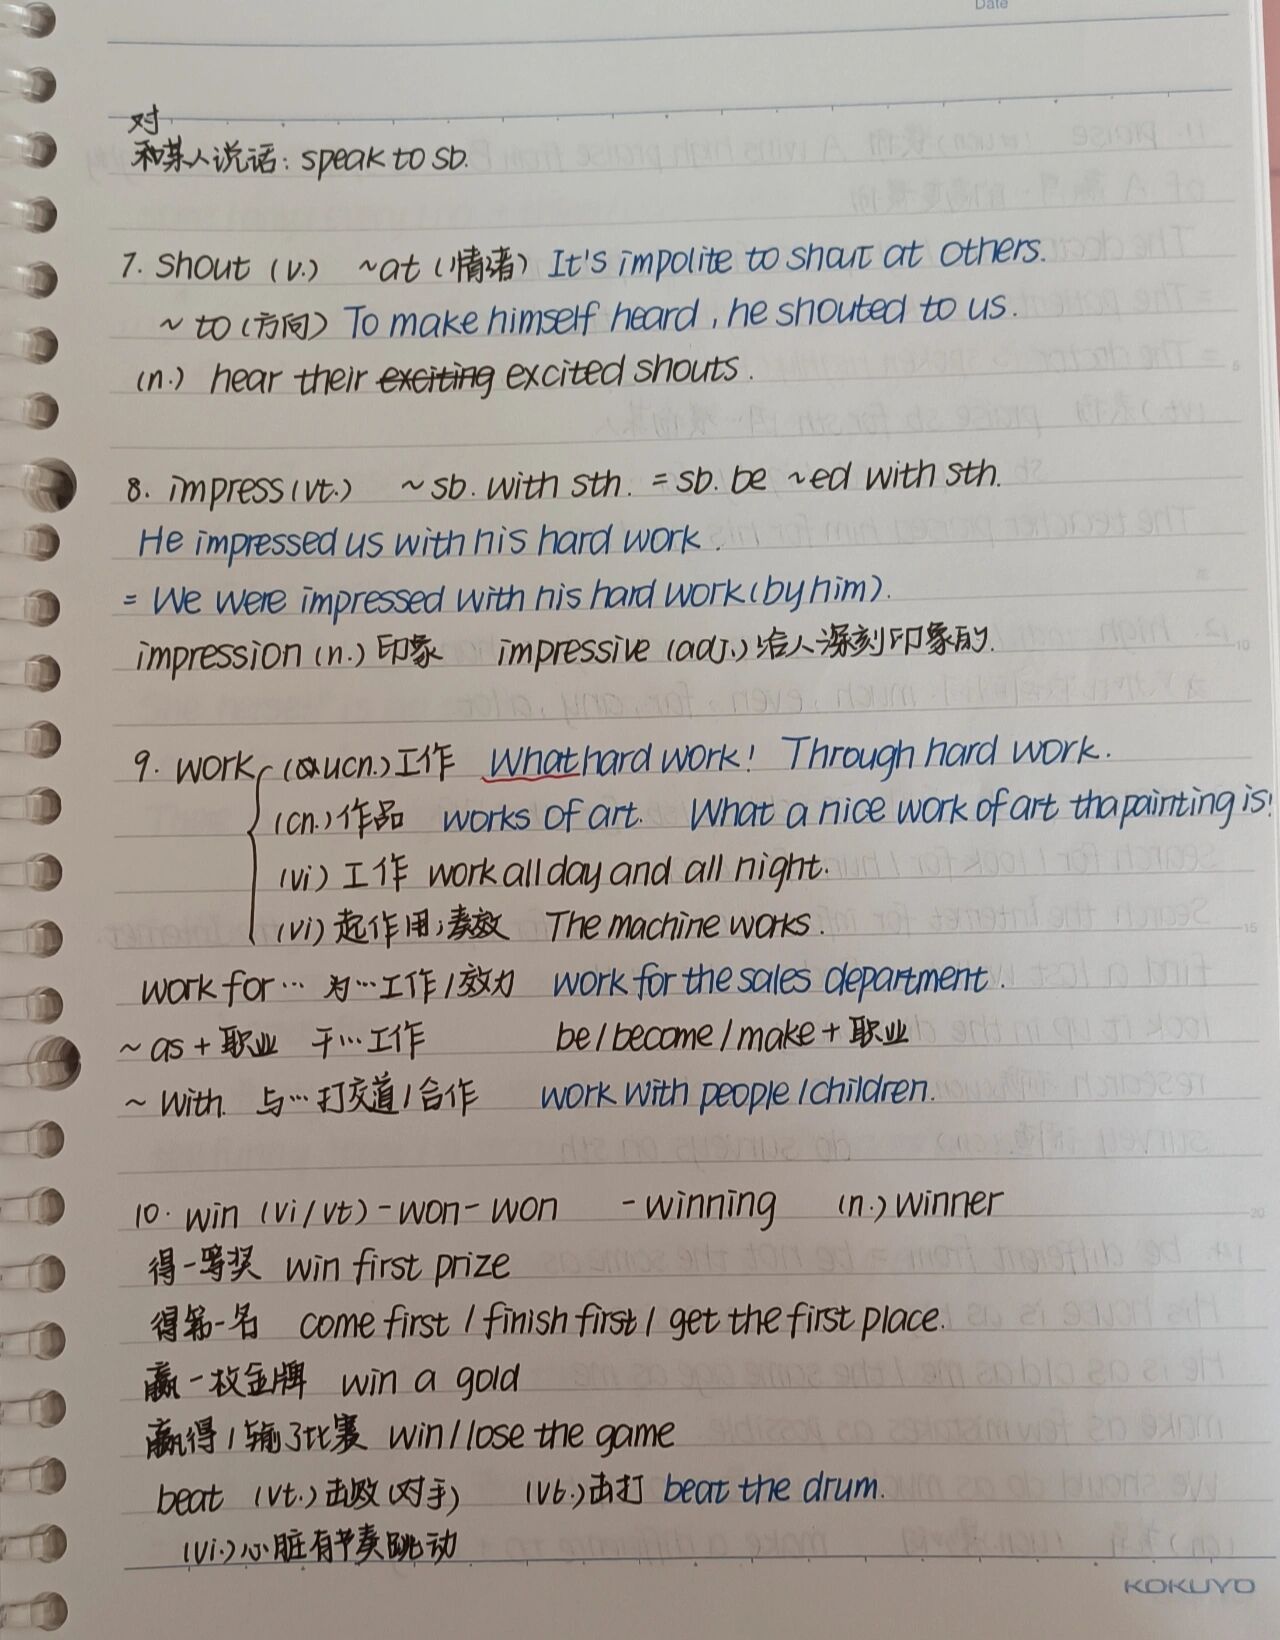 Date
对
和某人说话: speak to sb.
7. shout (v.) ~at (情绪) It's impolite to shout at others.
~ to (方向) To make himself heard, he shouted to us.
(n.) hear their exciting excited shouts.
8. impress (vt.) ~ sb. with sth. = sb. be ~ed with sth.
He impressed us with his hard work.
= We were impressed with his hard work (by him).
impression (n.) 印象 impressive (adj.) 给人深刻印象的.
9. work (ucn.) 工作 What hard work! Through hard work.
(cn.) 作品 works of art. What a nice work of art tha painting is!
(vi) 工作 work all day and all night.
(vi) 起作用;奏效 The machine works.
work for… 为…工作/效力 work for the sales department.
~ as + 职业 干…工作 be / become / make + 职业
~ with. 与…打交道/合作 work with people / children.
10. win (vi/vt) - won - won - winning (n.) winner
得一等奖 win first prize
得第一名 come first / finish first / get the first place.
赢一枚金牌 win a gold
赢得/输了比赛 win / lose the game
beat (vt.) 击败 (对手) (vt.) 击打 beat the drum.
(vi.) 心脏有节奏跳动
KOKUYO